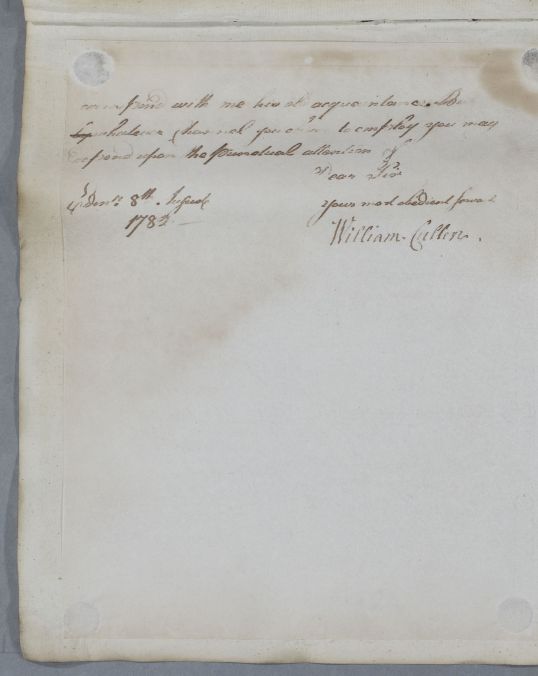 correspond with me his old acquaintance. But
whatever channel you chuse to employ you may
depend upon the punctual attention of
Dear Sir
Edenr. 8th. August
Your most obedient Servant
1782
William Cullen.